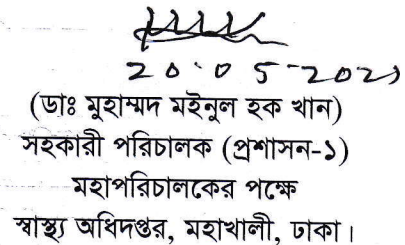 20.05-2021
(ডাঃ মুহাম্মদ মইনুল হক খান)
সহকারী পরিচালক (প্রশাসন-১)
মহাপরিচালকের পক্ষে
স্বাস্থ্য অধিদপ্তর, মহাখালী, ঢাকা।